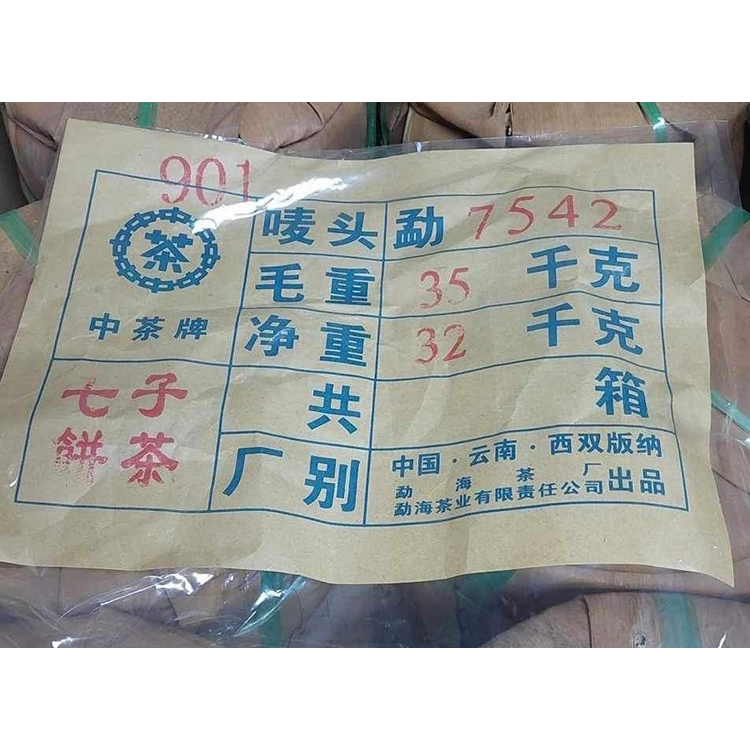 901
中中中中中中中中
茶
中茶牌
唛头 勐 7542
毛重 35 千克
净重 32 千克
七子
饼茶
共 箱
厂别
中国·云南·西双版纳
勐海茶厂
勐海茶业有限责任公司出品